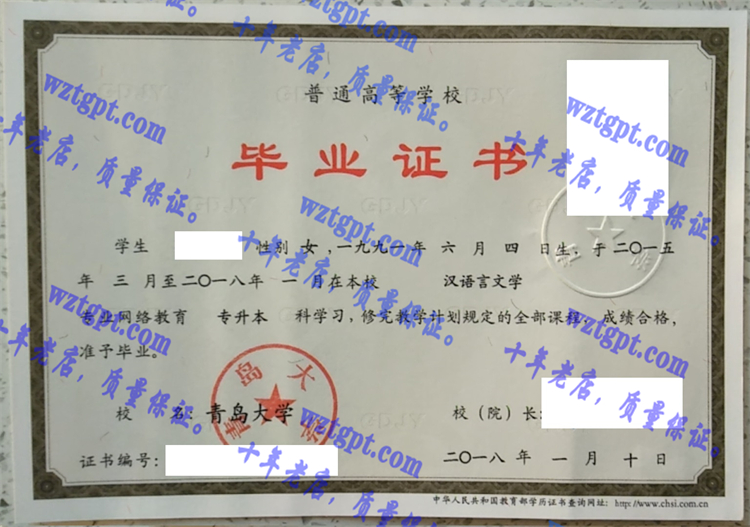 普通高等学校
毕业证书
学生 性别 女 ,一九九一年 六 月 四 日生, 于二〇一五
年 三 月至二〇一八年 一 月在本校 汉语言文学
专业网络教育 专升本 科学习, 修完教学计划规定的全部课程, 成绩合格,
准予毕业。
校 名: 青岛大学
校（院）长:
证书编号:
二〇一八年 一 月 十 日
中华人民共和国教育部学历证书查询网址: http://www.chsi.com.cn
青岛大学
wztgpt.com
十年老店，质量保证。
wztgpt.com
十年老店，质量保证。
wztgpt.com
十年老店，质量保证。
wztgpt.com
十年老店，质量保证。
wztgpt.com
十年老店，质量保证。
wztgpt.com
十年老店，质量保证。
wztgpt.com
十年老店，质量保证。
wztgpt.com
十年老店，质量保证。